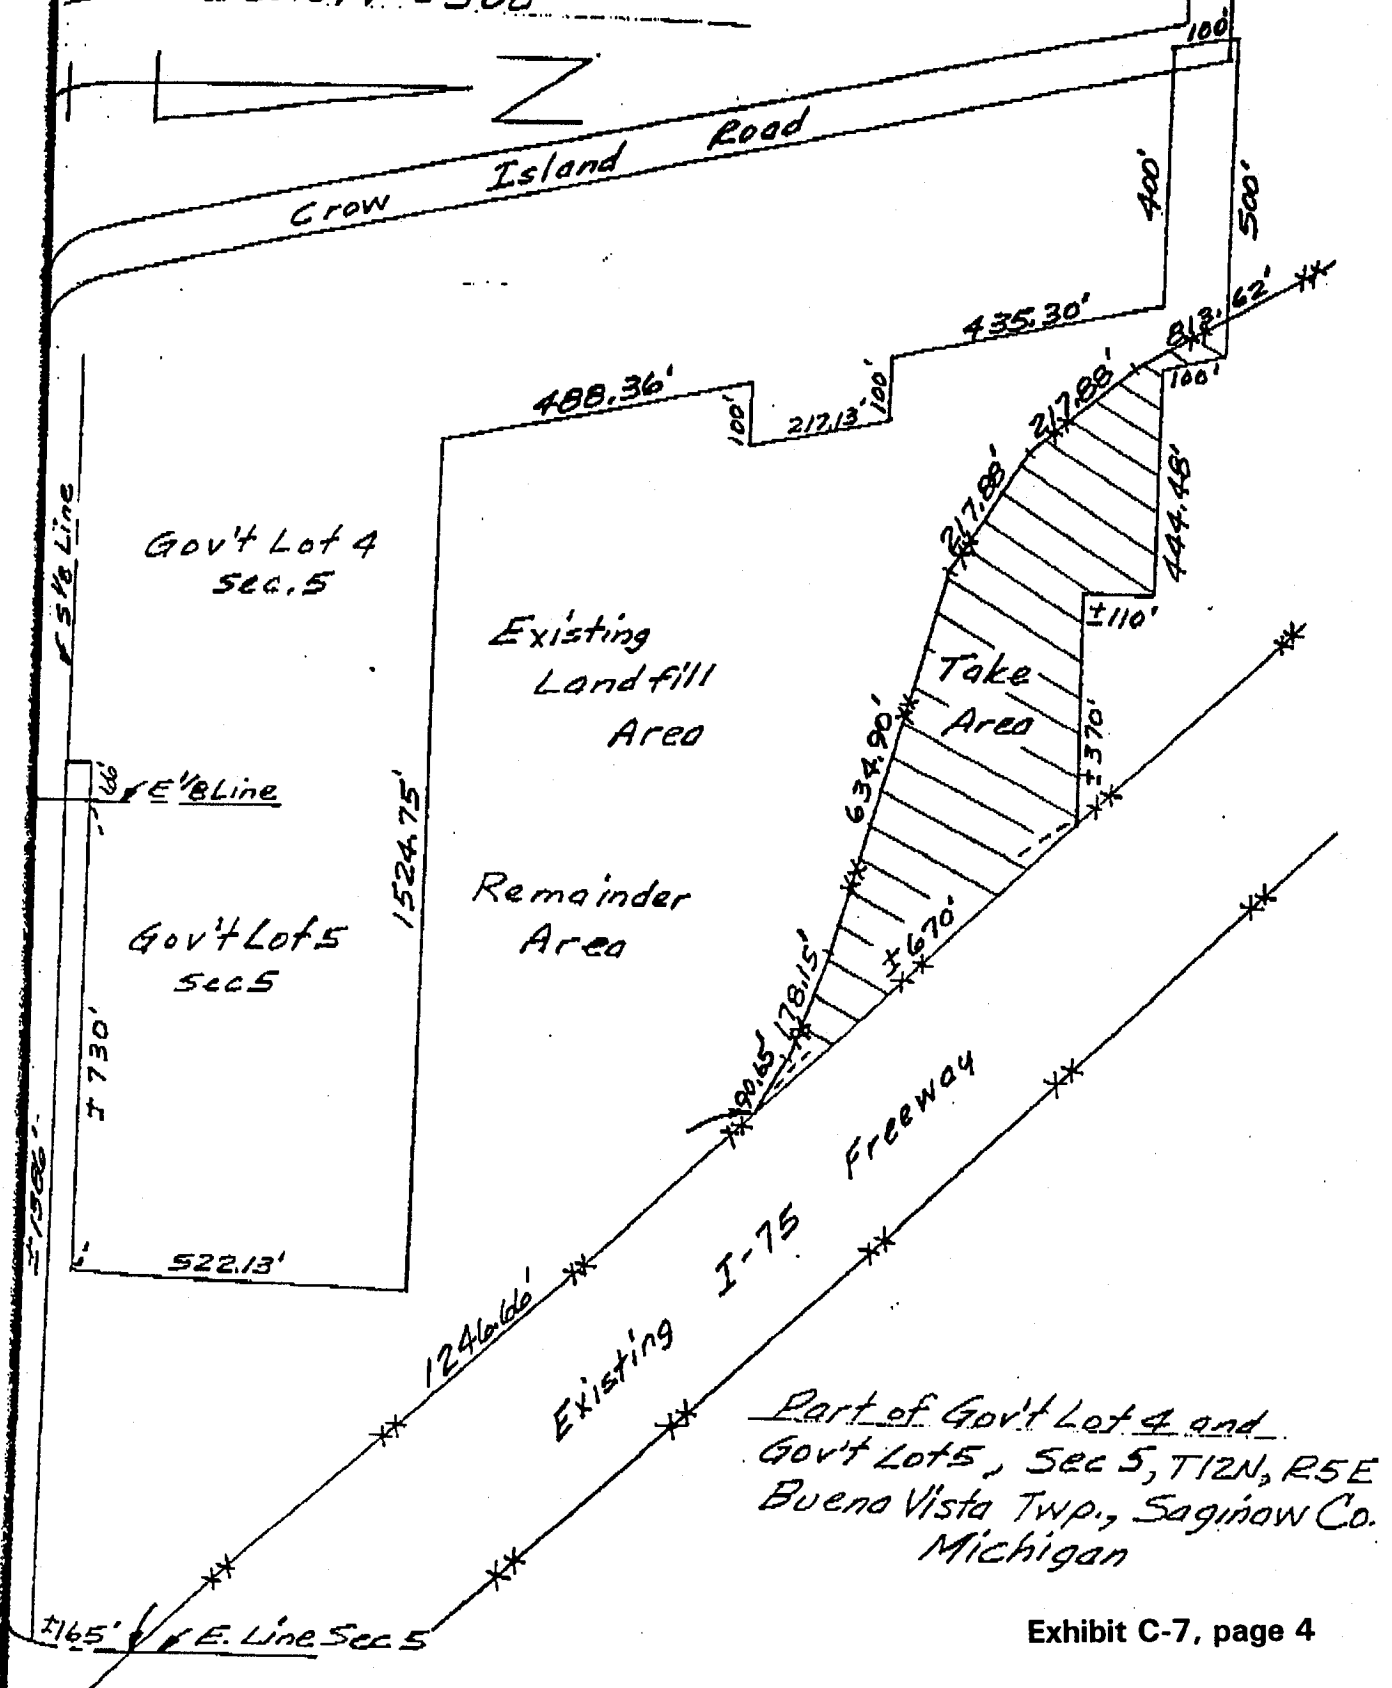 100'
Crow Island Road
400'
500'
813.62'
435.30'
100'
488.36'
100'
217.13'
100'
217.88'
217.88'
444.48'
S 1/8 Line
Gov't Lot 4
sec. 5
Existing
Landfill
Area
±110'
Take
Area
±370'
634.90'
66'
E 1/8 Line
1524.75'
Remainder
Area
Gov't Lot 5
sec 5
±670'
178.15'
190.65'
±730'
±1586'
522.13'
1246.66'
Existing I-75 Freeway
Part of Gov't Lot 4 and
Gov't Lot 5, Sec 5, T12N, R5E
Buena Vista Twp., Saginaw Co.
Michigan
±165'
E. Line Sec 5
Exhibit C-7, page 4